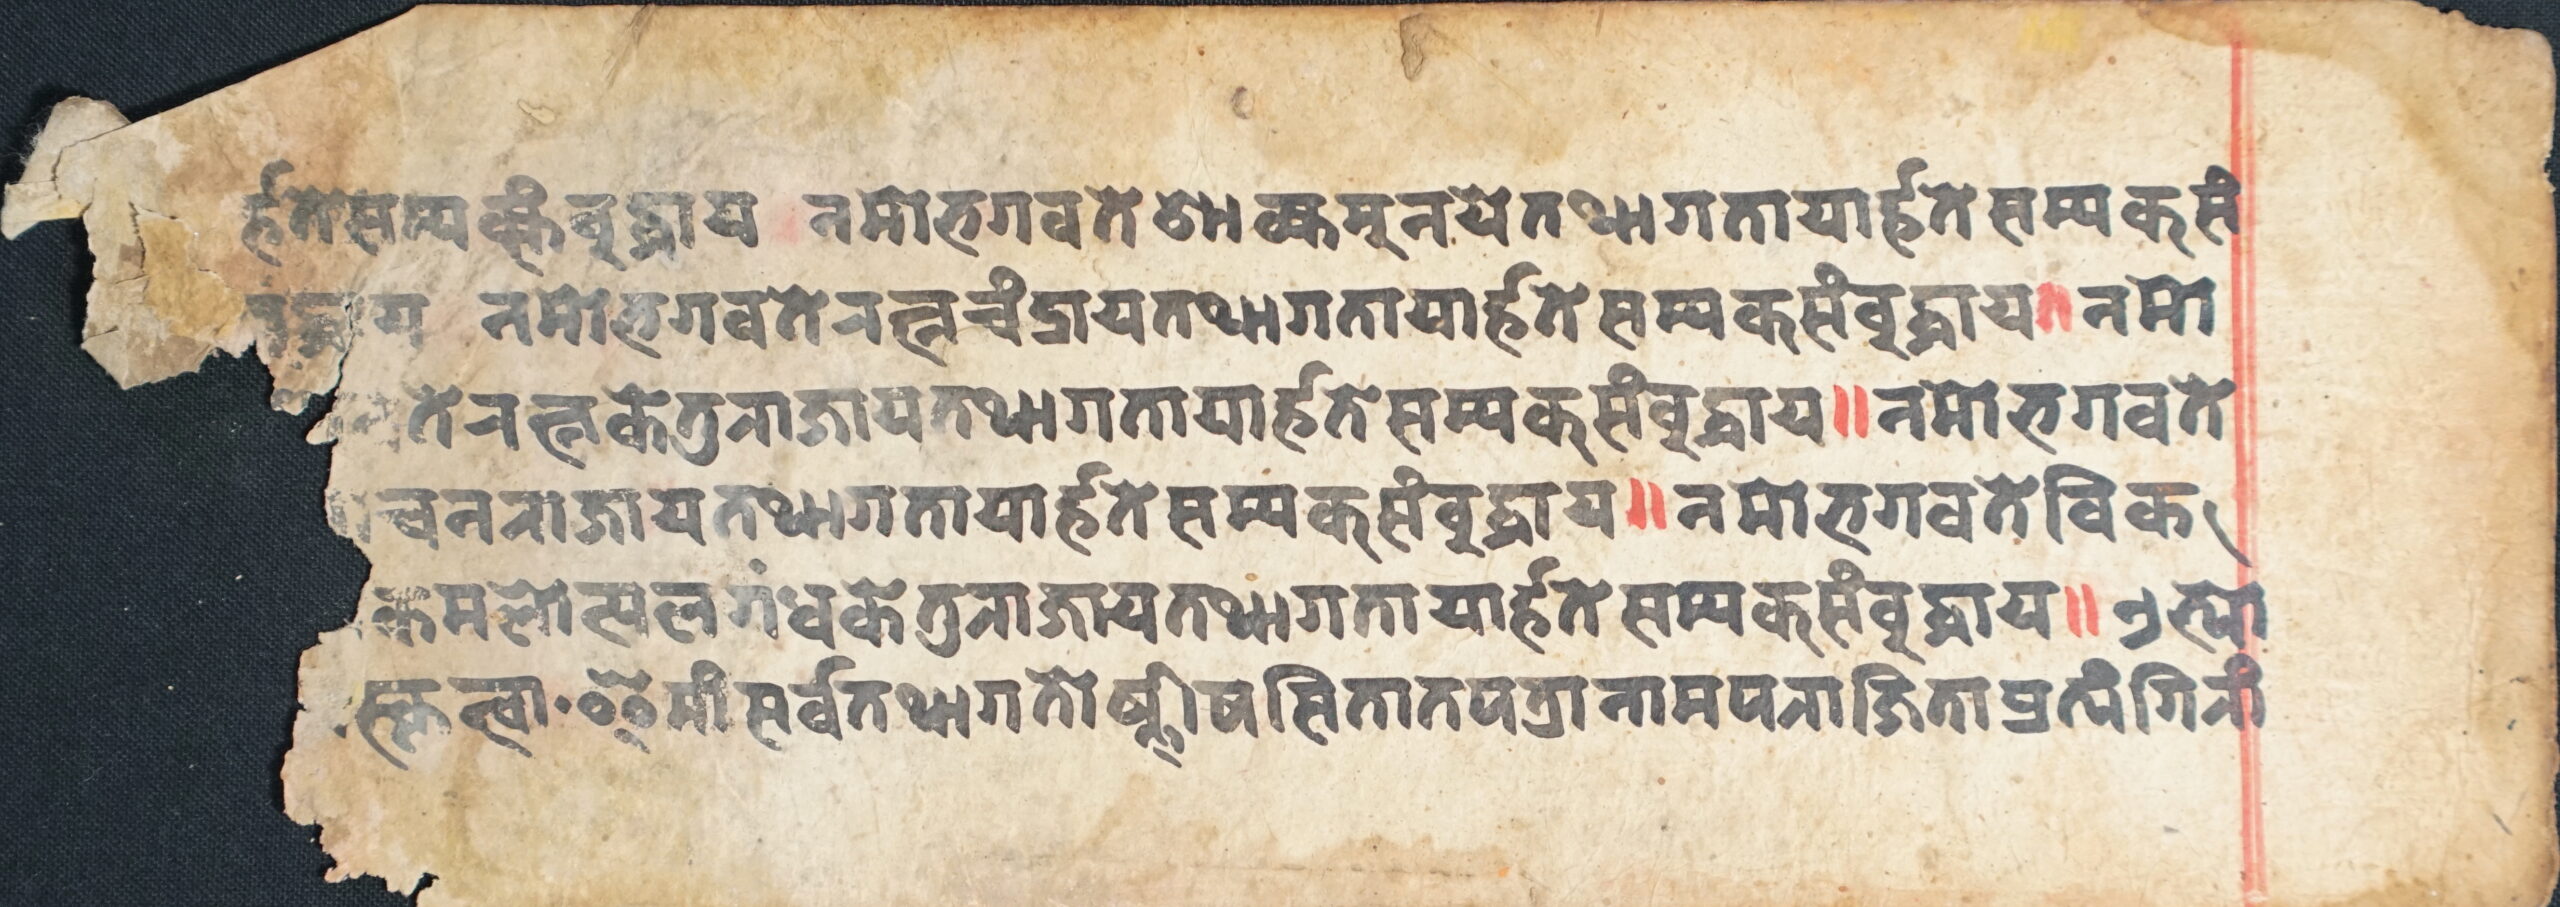 र्हते सम्यक्सं बुद्धाय नमो भगवते शाक्यमुनये तथागतायार्हते सम्यक्सं
बुद्धाय नमो भगवते रत्नचंद्राय तथागतायार्हते सम्यक्संबुद्धाय॥ नमो
ते रत्नकेतुराजाय तथागतायार्हते सम्यक्संबुद्धाय॥ नमो भगवते
चनराजाय तथागतायार्हते सम्यक्संबुद्धाय॥ नमो भगवते विक
कमलोत्पलगंधकेतुराजाय तथागतायार्हते सम्यक्संबुद्धाय॥ एभ्यो
स्कृत्वा · मां सर्वतथागतोष्णीषसितातपत्रा नामपराजिता प्रत्यंगिरां